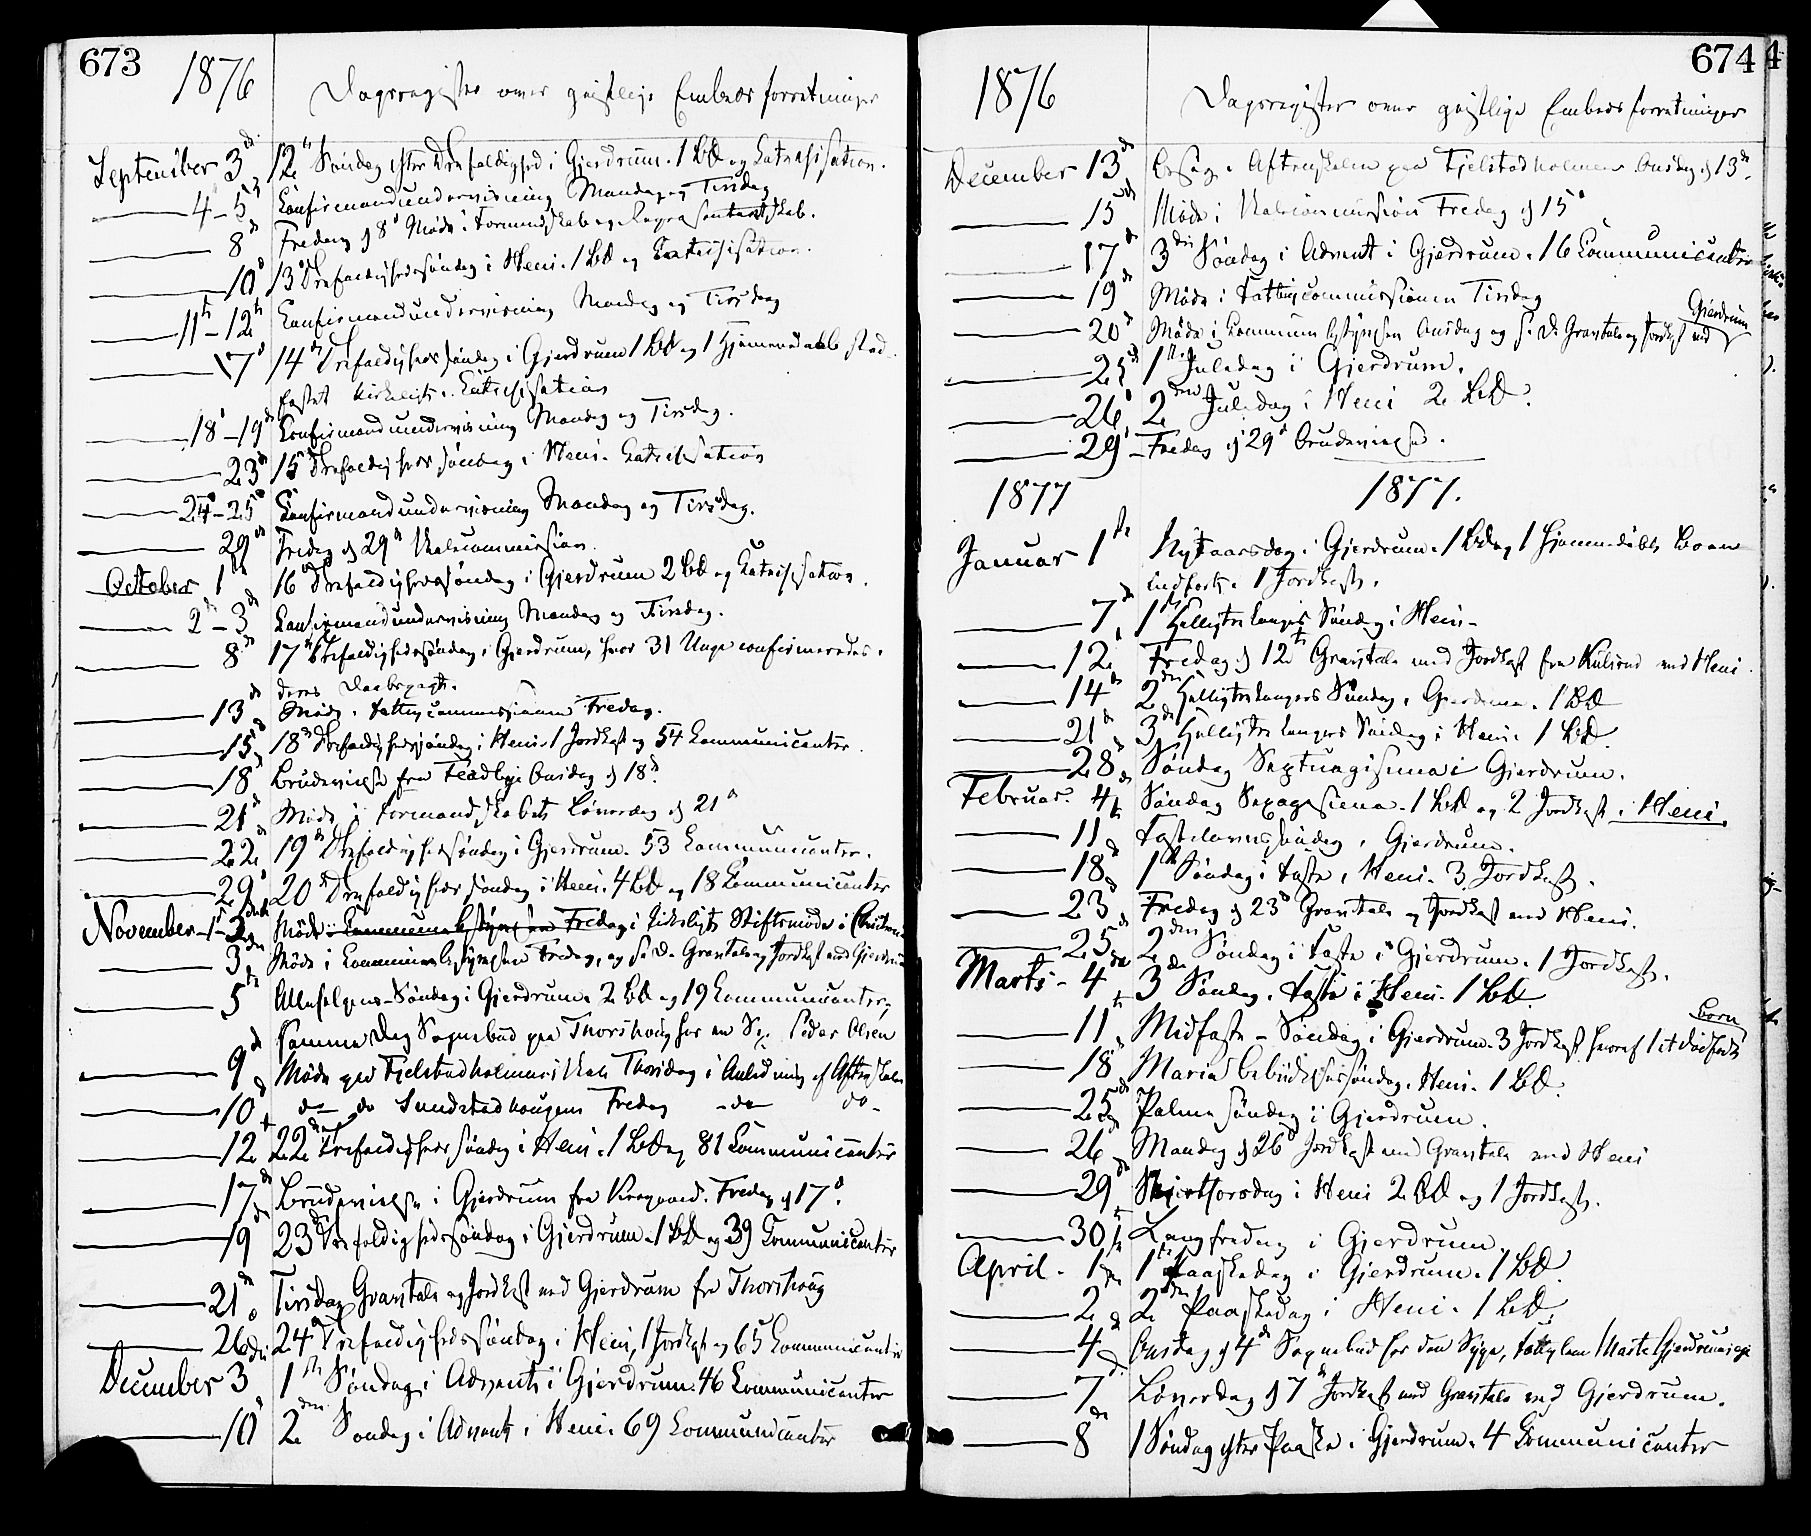 673
1876 Dagsregister over geistlige Embedsforretninger
September 3d. 12te Søndag efter Trefoldighed i Gjerdrum. 1 BD og Catechisation.
4-5te Confirmandundervisning Mandag og Tirsdag
8de Fredag d 8d Møde i Formandskab og Repræsentantskab.
10d 13d Trefoldighedssøndag i Heni. 1 BD og Catechisation.
11th-12th Confirmandundervisning Mandag og Tirsdag
17d 14de Trefoldighedssøndag i Gjerdrum 1 BD og 1 Hjemmedøbt stad
fæstet kirkeligt. Catechisation
18d-19de Confirmandundervisning Mandag og Tirsdag.
23de 15de Trefoldighedssøndag i Heni. Catechisation
24d-25d Confirmandundervisning Mandag og Tirsdag.
29de Fredag d 29de Valcommission.
October 1ste 16de Trefoldighedssøndag i Gjerdrum 2 BD og Catechisation.
2d-3de Confirmandundervisning Mandag og Tirsdag.
8de 17de Trefoldighedssøndag i Gjerdrum, hvor 31 Unge confirmeredes i
deres Daabspagt.
13de Møde i Fattigcommissionen Fredag.
15de 18de Trefoldighedssøndag i Heni. 1 Jordkast og 54 Communicanter.
18de Brudevielse fra Onsdag d 18d.
21d Møde i Formandskabet Løverdag d 21d
22de 19de Trefoldighedssøndag i Gjerdrum. 53 Communicanter.
29d 20de Trefoldigheds søndag i Heni. 4 BD og 18 Communicanter
November 1-2den Møde i Communebestyrelsen Fredag i kirkeligt Stiftsmøde i
3die Møde i Communebestyrelsen Fredag, og s. D. Gravtale og Jordkast ved Gjerdrum
5te Allehelgens-Søndag i Gjerdrum. 2 BD og 19 Communicanter,
samme Dag Sognebud paa Thorshoug for en Sy. Peder Olsen
9d Møde paa Fjelstadholmens Skole Thorsdag i Anledning af Aftenskolen
10de do do Sundstadhougens Fredag -do- do-
12te 22de Trefoldigheds søndag i Heni. 1 BD og 81 Communicanter
17de Brudevielse i Gjerdrum fra Fredag d 17d.
19de 23de Trefoldighedssøndag i Gjerdrum. 1 BD og 39 Communicanter
21d Tirsdag Gravtale og Jordkast ved Gjerdrum fr Thorshoug
26de 24de Trefoldighedssøndag i Heni, 1 Jordkast og 65 Communicanter
December 3die 1ste Søndag i Advent i Gjerdrum. 46 Communicanter
10d 2den Søndag i Advent i Heni. 69 Communicanter
674
1876 Dagsregister over geistlige Embedsforretninger
December 13de Besøg i Aftenskolen paa Fjelstadholmen Onsdag d 13de.
15de Møde i Valcommission Fredag d 15d
17d 3die Søndag i Advent i Gjerdrum. 16 Communicanter
19de Møde i Fattigcommissionen Tirsdag
20d Møde i Communebestyrelsen Onsdag og s. D. Gravtale og Jordkast ved Gjerdrum
25de 1ste Juledag i Gjerdrum.
26d 2den Juledag i Heni 2 BD.
29d Fredag d 29d Brudevielse.
1877 1877.
Januar 1ste Nytaarsdag i Gjerdrum. 1 BD og 1 Hjemmedøbt Barn
indført. 1 Jordkast.
7de 1ste Helligtrekongers Søndag i Heni-
12te Fredag d 12te Gravtale med Jordkast fra Kulsrud ved Heni.
14de 2den Helligtrekongers Søndag i Gjerdrum. 1 BD
21de 3die Helligtrekongers Søndag i Heni. 1 BD.
28de Søndag Septuagisima i Gjerdrum.
Februar. 4de Søndag Sexagesima. 1 BD og 2 Jordkast i Heni.
11te Fastelavnssøndag i Gjerdrum.
18de 1ste Søndag i Faste i Heni. 3 Jordkast.
23de Fredag d 23d Gravtale og Jordkast ved Heni.
25de 2den Søndag i Faste i Gjerdrum. 1 Jordkast.
Marts - 4de 3die Søndag i Faste i Heni. 1 BD.
11te Midfaste-Søndag i Gjerdrum. 3 Jordkast, hvoraf 1 et dødfødt Barn
18de Mariæ Bebudelsessøndag i Heni. 1 BD.
25de Palmesøndag i Gjerdrum.
26de Mandag d 26d Jordkast med Gravtale ved Heni
29de Skjertorsdag i Heni 2 BD og 1 Jordkast.
30te Langfredag i Gjerdrum.
April. 1ste 1ste Paaskedag i Gjerdrum. 1 BD.
2den 2den Paaskedag i Heni. 1 BD.
4de Onsdag d 4de Sognebud for den Syge, Fattiglem Marte Gjerdrumseje
7de Løverdag d 7de Jordkast med Gravtale ved Gjerdrum.
8de 1 Søndag efter Paaske i Gjerdrum. 4 Communicanter